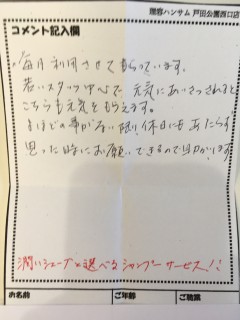 理容ハンサム 戸田公園西口店
コメント記入欄
毎月利用させてもらっています。
若いスタッフ中心で 元気にあいさつされると
こちらも元気をもらえます。
よほどの事がない限り 休日にもあたらず
思った時にお願いできるので助かります
潤いシェーブと選べるシャンプーサービス!!
お名前
ご年齢
ご職業